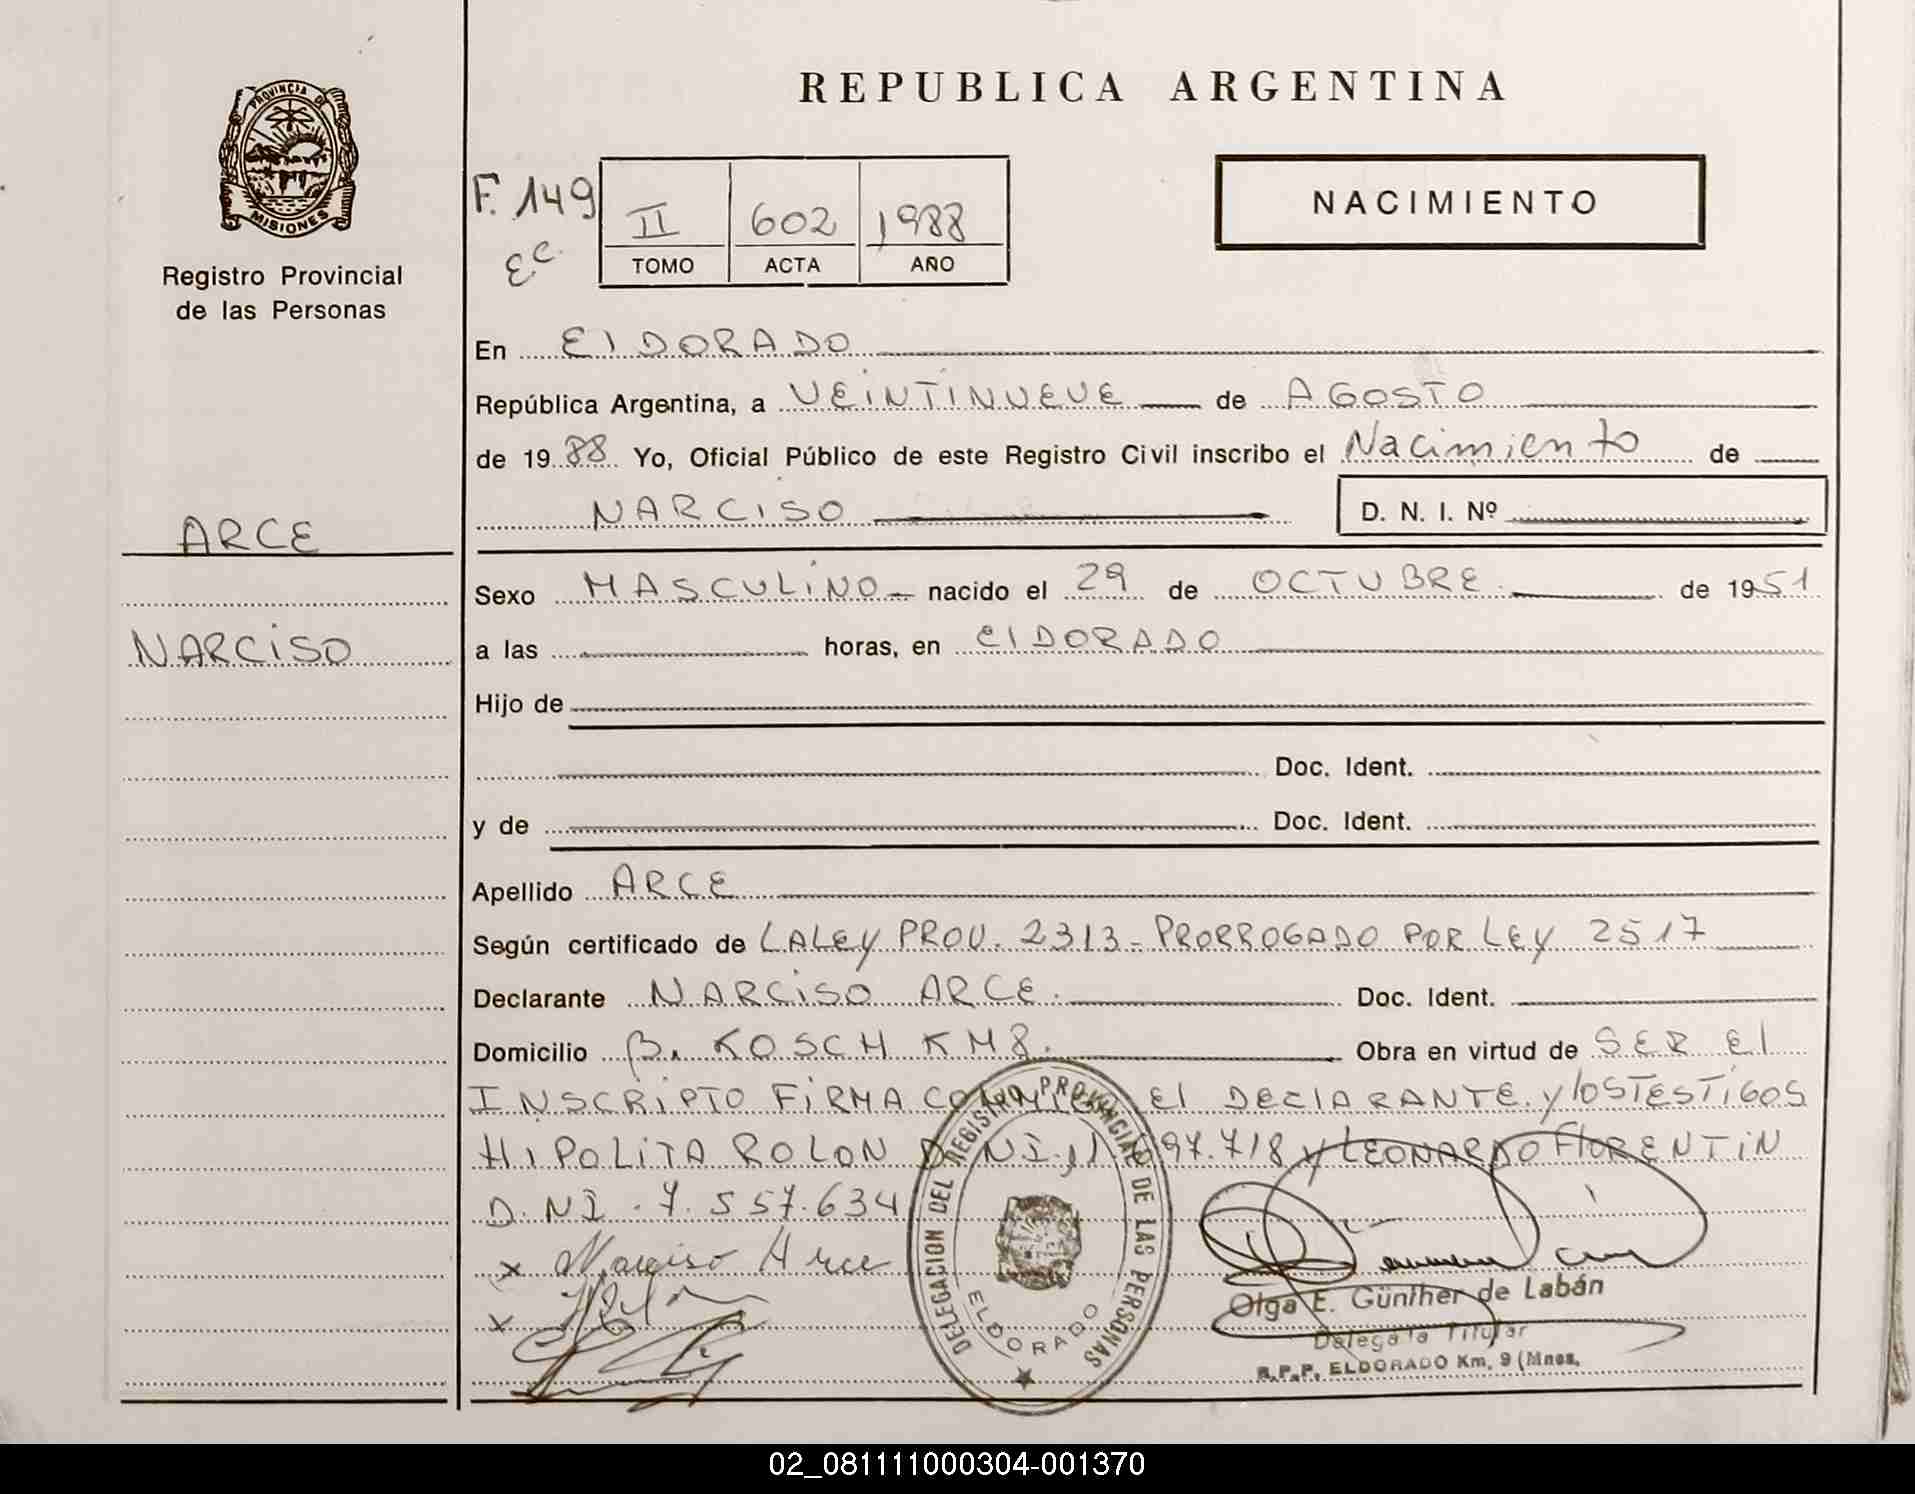 REPUBLICA ARGENTINA
PROVINCIA DE
MISIONES
Registro Provincial
de las Personas
F. 149
II 602 1988
TOMO ACTA AÑO
NACIMIENTO
En ElDORADO
República Argentina, a VEINTINUEVE de AGOSTO
de 1988 Yo, Oficial Público de este Registro Civil inscribo el Nacimiento de
NARCISO D. N. I. Nº
ARCE
NARCISO
Sexo MASCULINO nacido el 29 de OCTUBRE de 1951
a las horas, en ElDORADO
Hijo de
Doc. Ident.
y de Doc. Ident.
Apellido ARCE
Según certificado de LA LEY PROV. 2313 - PRORROGADO POR LEY 2517
Declarante NARCISO ARCE. Doc. Ident.
Domicilio B. KOSCH KM 8. Obra en virtud de SER El
INSCRIPTO FIRMA El DEClARANTE y lOS TESTIGOS
HIPOLITA ROLON D.NI. 97.718 y LEONARDO FlORENTIN
D.NI. 7.557.634
x Narciso Arce
x
DELEGACION DEL REGISTRO PROVINCIAL DE LAS PERSONAS
ELDORADO
Olga E. Günther de Labán
Delegada Titular
R.P.P. ELDORADO Km. 9 (Mnes.
02_081111000304-001370